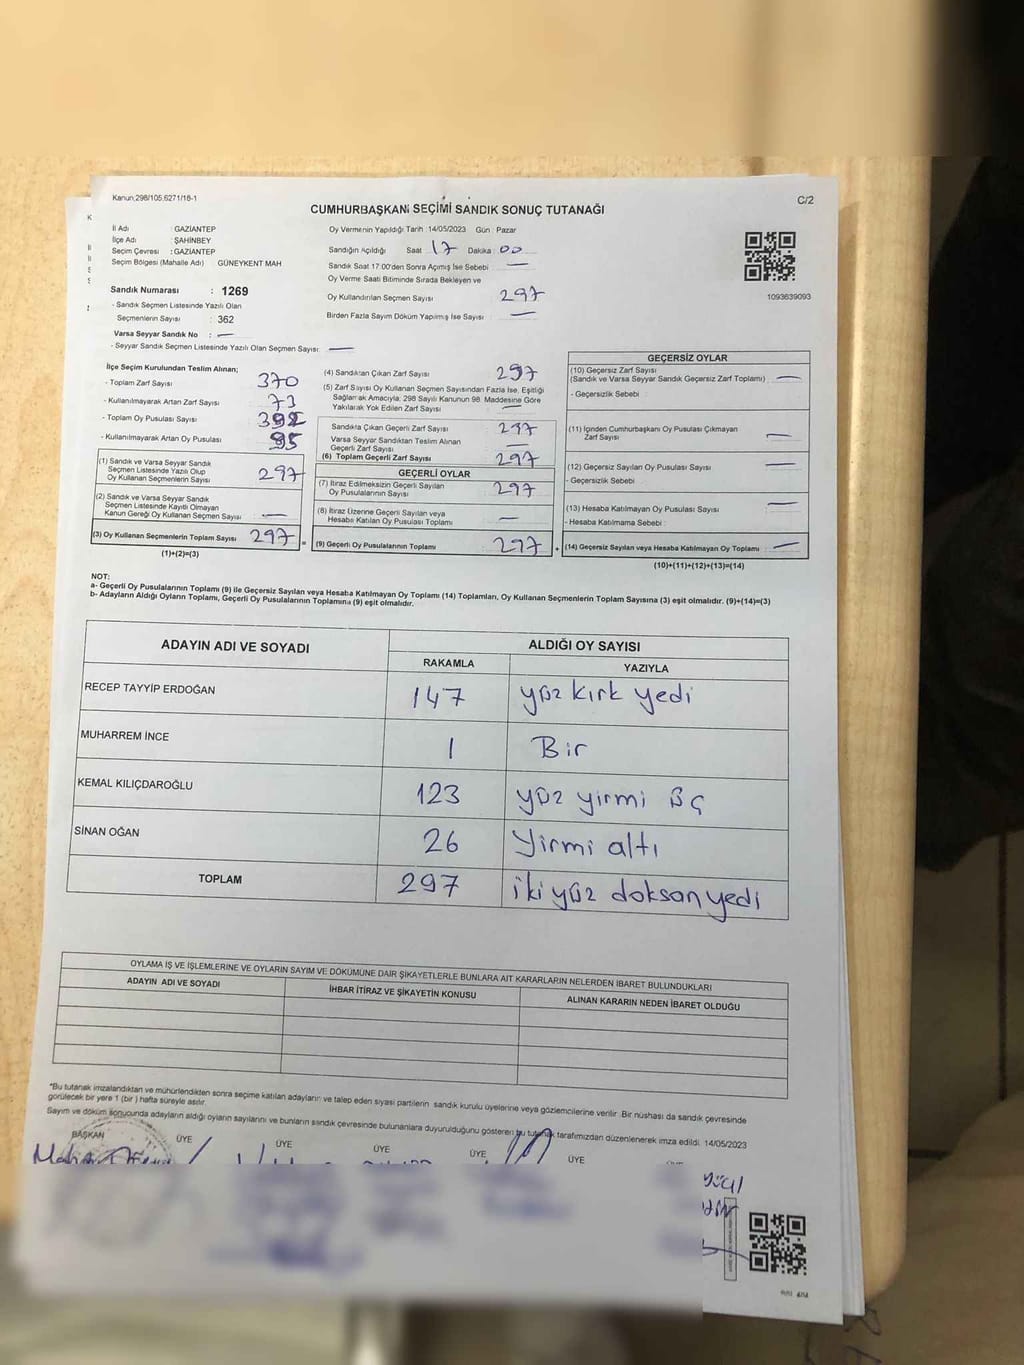 Kanun;298/105,6271/18-1
C/2
CUMHURBAŞKANI SEÇİMİ SANDIK SONUÇ TUTANAĞI
İl Adı : GAZİANTEP
İlçe Adı : ŞAHİNBEY
Seçim Çevresi : GAZİANTEP
Seçim Bölgesi (Mahalle Adı) GÜNEYKENT MAH
Sandık Numarası : 1269
- Sandık Seçmen Listesinde Yazılı Olan
Seçmenlerin Sayısı : 362
Varsa Seyyar Sandık No : —
- Seyyar Sandık Seçmen Listesinde Yazılı Olan Seçmen Sayısı: —
Oy Vermenin Yapıldığı Tarih 14/05/2023 Gün : Pazar
Sandığın Açıldığı Saat 17 Dakika : 00
Sandık Saat 17.00'den Sonra Açımış İse Sebebi : —
Oy Verme Saati Bitiminde Sırada Bekleyen ve
Oy Kullandırılan Seçmen Sayısı 297
Birden Fazla Sayım Döküm Yapılmış İse Sayısı : —
1093639093
İlçe Seçim Kurulundan Teslim Alınan;
- Toplam Zarf Sayısı 370
- Kullanılmayarak Artan Zarf Sayısı 73
- Toplam Oy Pusulası Sayısı 392
- Kullanılmayarak Artan Oy Pusulası 95
(1) Sandık ve Varsa Seyyar Sandık
Seçmen Listesinde Yazılı Olup
Oy Kullanan Seçmenlerin Sayısı 297
(2) Sandık ve Varsa Seyyar Sandık
Seçmen Listesinde Kayıtlı Olmayan
Kanun Gereği Oy Kullanan Seçmen Sayısı —
(3) Oy Kullanan Seçmenlerin Toplam Sayısı 297 =
(1)+(2)=(3)
(4) Sandıktan Çıkan Zarf Sayısı 297
(5) Zarf Sayısı Oy Kullanan Seçmen Sayısından Fazla İse, Eşitliği
Sağlamak Amacıyla; 298 Sayılı Kanunun 98. Maddesine Göre
Yakılarak Yok Edilen Zarf Sayısı —
Sandıkta Çıkan Geçerli Zarf Sayısı 297
Varsa Seyyar Sandıktan Teslim Alınan
Geçerli Zarf Sayısı —
(6) Toplam Geçerli Zarf Sayısı 297
GEÇERLİ OYLAR
(7) İtiraz Edilmeksizin Geçerli Sayılan
Oy Pusulalarının Sayısı 297
(8) İtiraz Üzerine Geçerli Sayılan veya
Hesaba Katılan Oy Pusulası Toplamı —
(9) Geçerli Oy Pusulalarının Toplamı 297 +
GEÇERSİZ OYLAR
(10) Geçersiz Zarf Sayısı
(Sandık ve Varsa Seyyar Sandık Geçersiz Zarf Toplamı) —
- Geçersizlik Sebebi :
(11) İçinden Cumhurbaşkanı Oy Pusulası Çıkmayan
Zarf Sayısı —
(12) Geçersiz Sayılan Oy Pusulası Sayısı —
- Geçersizlik Sebebi :
(13) Hesaba Katılmayan Oy Pusulası Sayısı —
- Hesaba Katılmama Sebebi :
(14) Geçersiz Sayılan veya Hesaba Katılmayan Oy Toplamı —
(10)+(11)+(12)+(13)=(14)
NOT:
a- Geçerli Oy Pusulalarının Toplamı (9) ile Geçersiz Sayılan veya Hesaba Katılmayan Oy Toplamı (14) Toplamları, Oy Kullanan Seçmenlerin Toplam Sayısına (3) eşit olmalıdır. (9)+(14)=(3)
b- Adayların Aldığı Oyların Toplamı, Geçerli Oy Pusulalarının Toplamına (9) eşit olmalıdır.
ADAYIN ADI VE SOYADI ALDIĞI OY SAYISI
RAKAMLA YAZIYLA
RECEP TAYYİP ERDOĞAN 147 yüz kırk yedi
MUHARREM İNCE 1 Bir
KEMAL KILIÇDAROĞLU 123 yüz yirmi üç
SİNAN OĞAN 26 Yirmi altı
TOPLAM 297 iki yüz doksan yedi
OYLAMA İŞ VE İŞLEMLERİNE VE OYLARIN SAYIM VE DÖKÜMÜNE DAİR ŞİKAYETLERLE BUNLARA AİT KARARLARIN NELERDEN İBARET BULUNDUKLARI
ADAYIN ADI VE SOYADI İHBAR İTİRAZ VE ŞİKAYETİN KONUSU ALINAN KARARIN NEDEN İBARET OLDUĞU
*Bu tutanak imzalandıktan ve mühürlendikten sonra seçime katılan adayların ve talep eden siyasi partilerin sandık kurulu üyelerine veya gözlemcilerine verilir. Bir nüshası da sandık çevresinde
görülecek bir yere 1 (bir ) hafta süreyle asılır.
Sayım ve döküm sonucunda adayların aldığı oyların sayılarını ve bunların sandık çevresinde bulunanlara duyurulduğunu gösteren bu tutanak tarafımızdan düzenlenerek imza edildi. 14/05/2023
BAŞKAN ÜYE ÜYE ÜYE ÜYE ÜYE